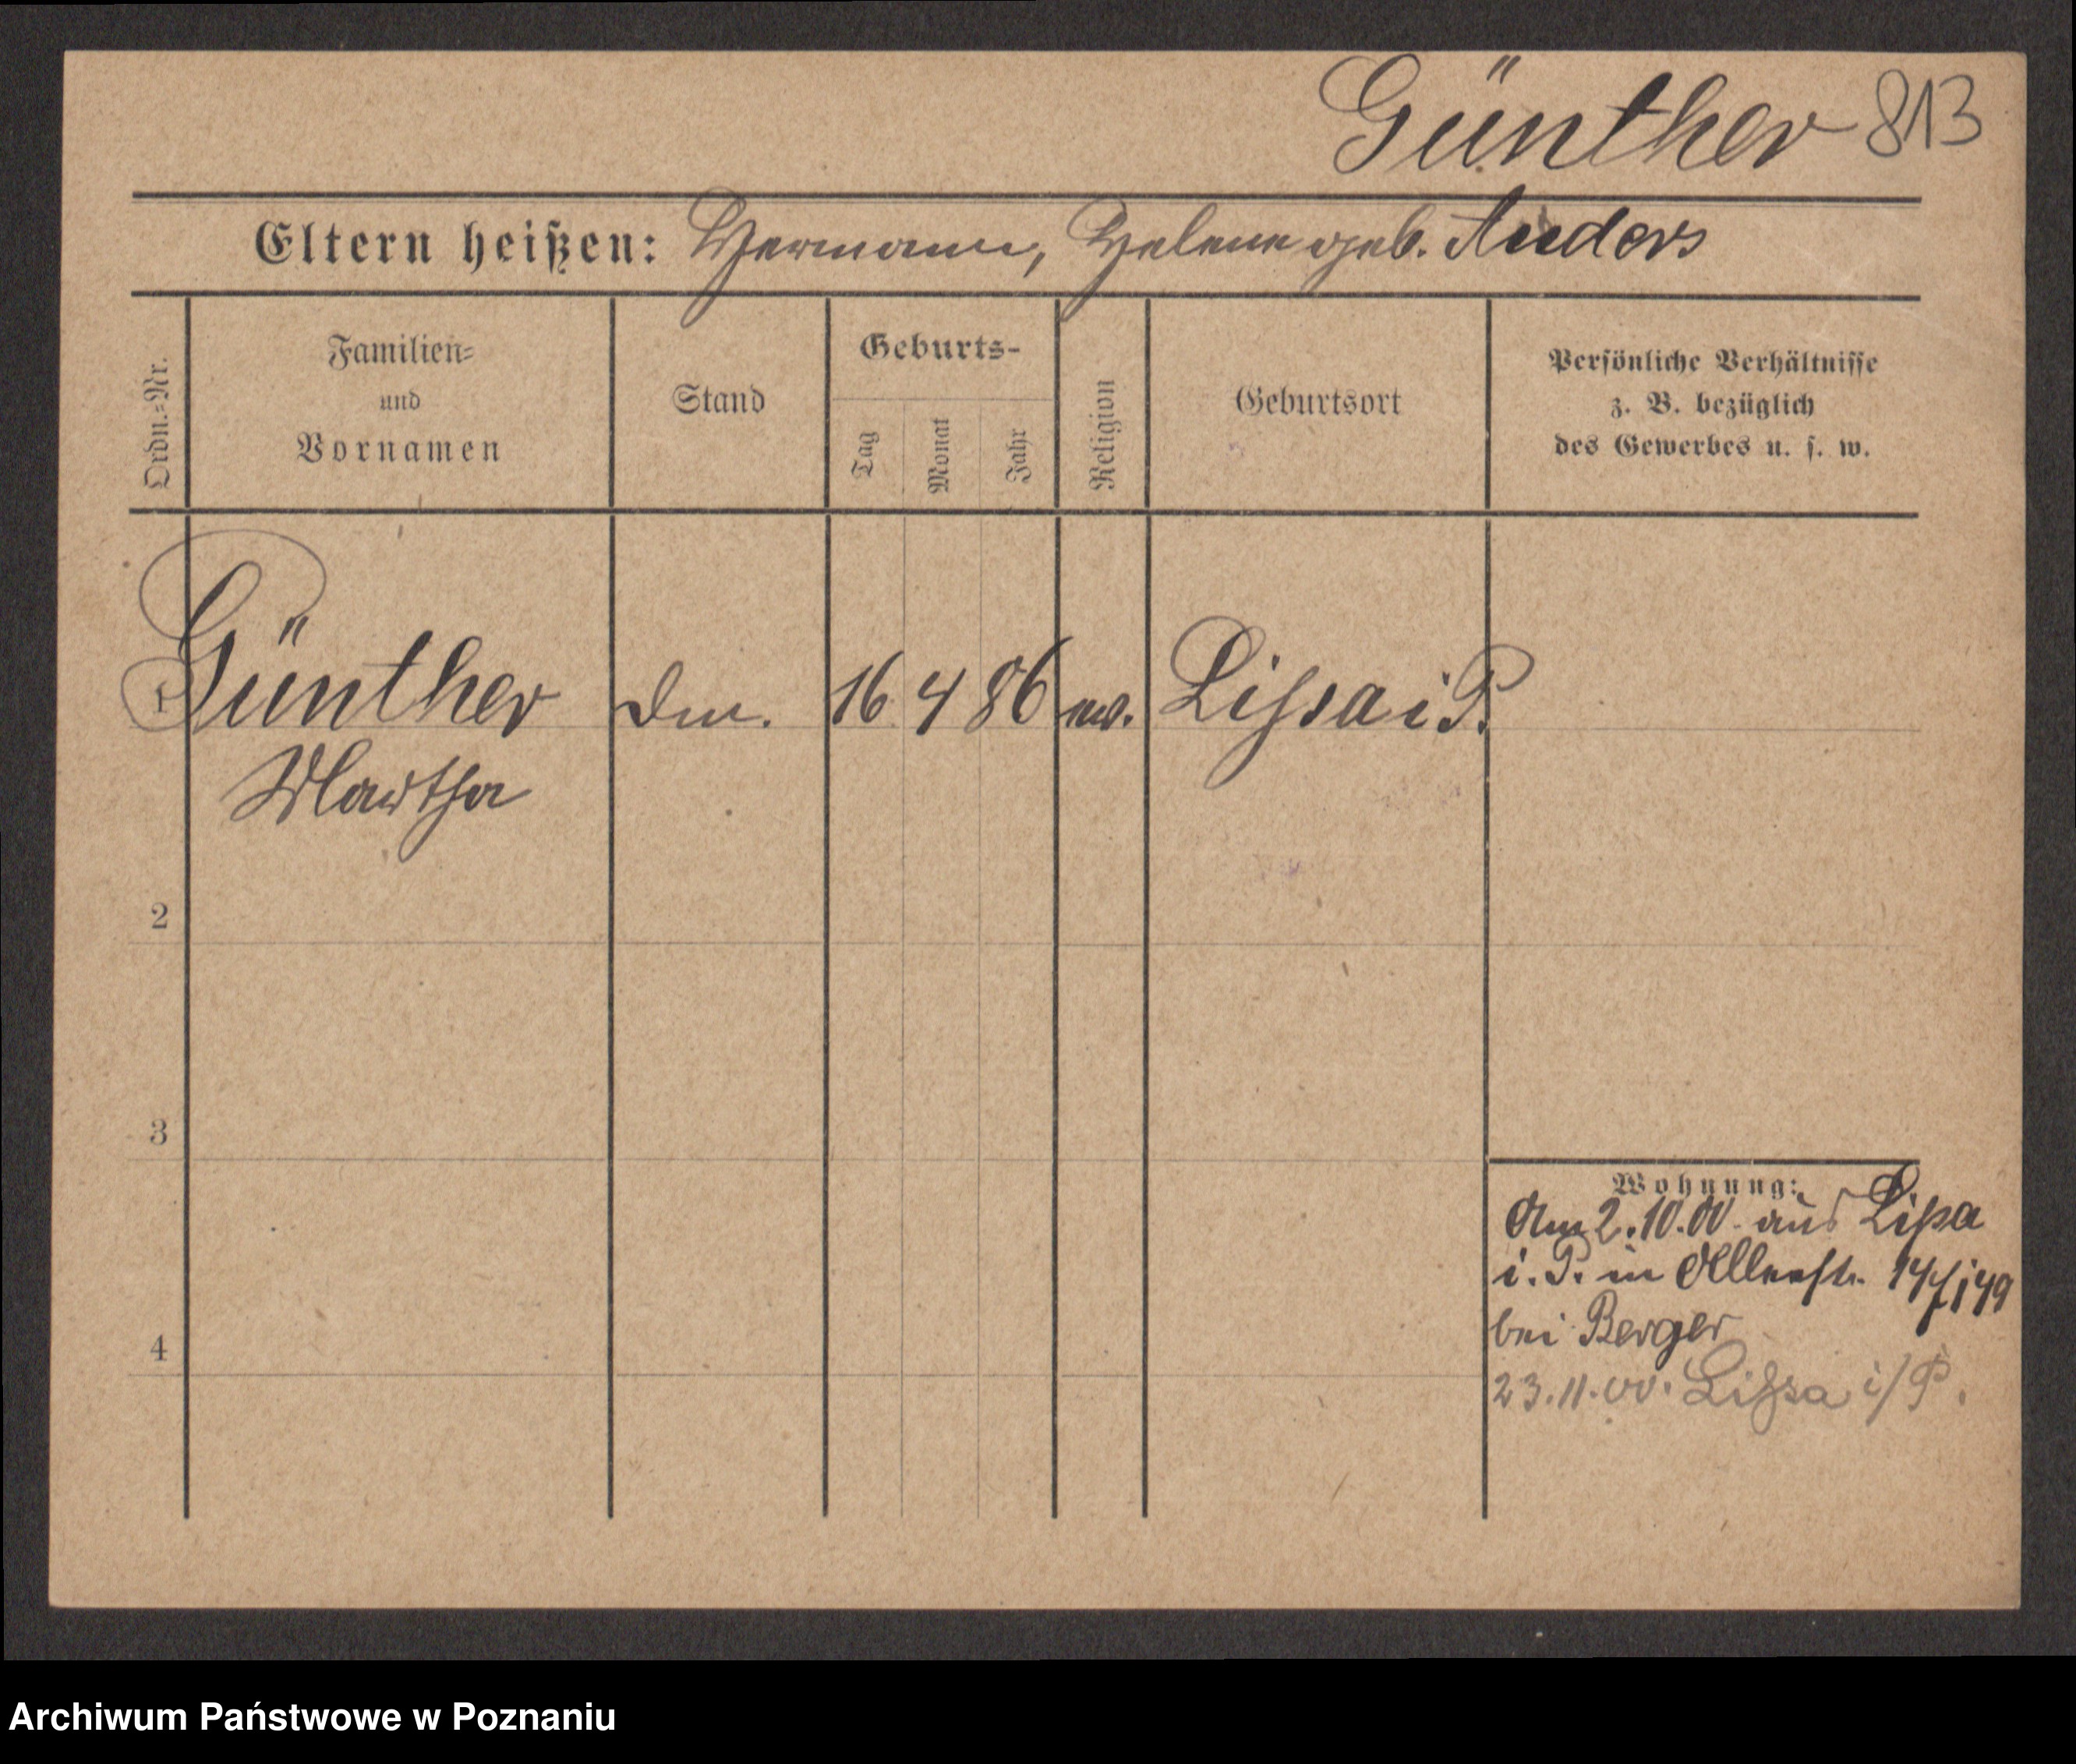 Günther 813
Eltern heißen: Hermann, Helene geb. Anders
Ordn.=Nr.
Familien=
und
Vornamen
Stand
Geburts-
Tag
Monat
Jahr
Religion
Geburtsort
Persönliche Verhältnisse
z. B. bezüglich
des Gewerbes u. s. w.
1 Günther 16 4 86 ev. Lissa i P.
Martha
2
3
4
Wohnung:
Am 2.10.00. aus Lissa
i. P. in
bei Berger
23.11.00. Lissa i/P.
Archiwum Państwowe w Poznaniu